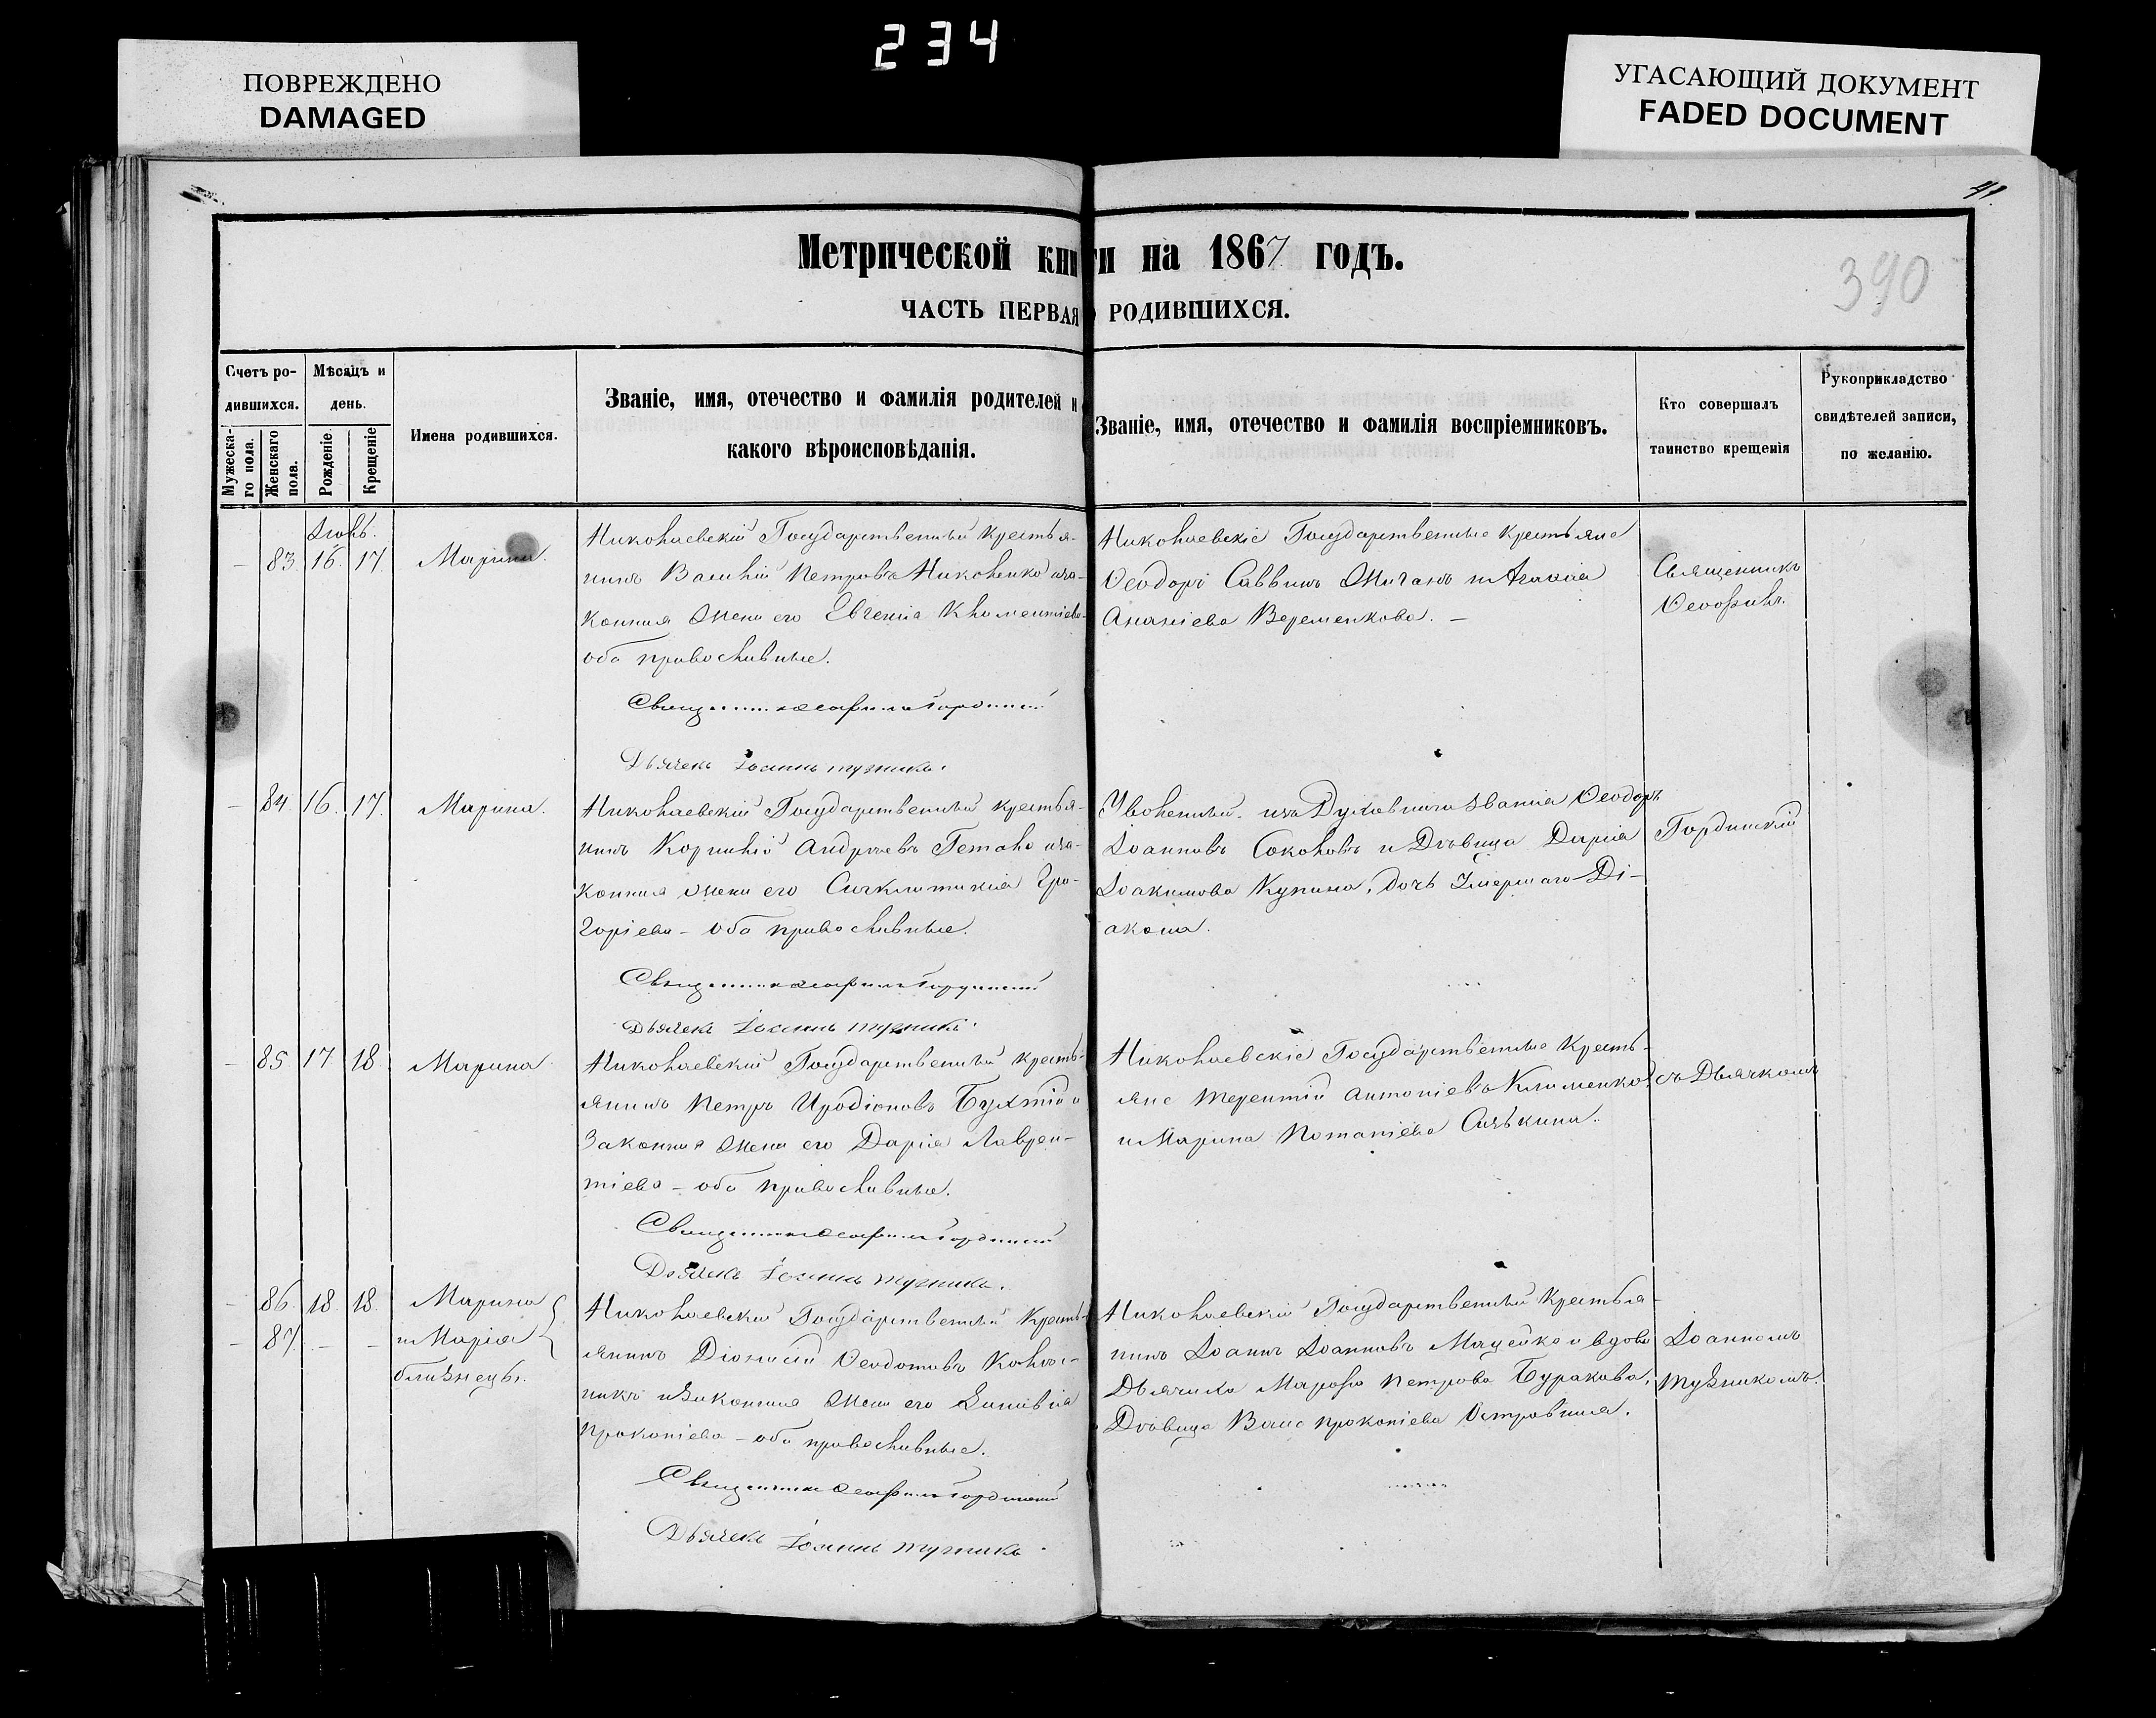 234
ПОВРЕЖДЕНО
DAMAGED
УГАСАЮЩИЙ ДОКУМЕНТ
FADED DOCUMENT
41.
Метрической книги на 1867 годъ.
390
ЧАСТЬ ПЕРВАЯ О РОДИВШИХСЯ.
Счетъ ро-
дившихся.
Мужеска-
го пола.
Женскаго
пола.
Мѣсяцъ и
день.
Рожденіе.
Крещеніе
Имена родившихся.
Званіе, имя, отечество и фамилія родителей и
какого вѣроисповѣданія.
Званіе, имя, отечество и фамилія воспріемниковъ.
Кто совершалъ
таинство крещенія
Рукоприкладство
свидѣтелей записи,
по желанію.
Іюнь.
– 83. 16. 17. Марина.
Николаевскій Государственный крестья-
нинъ Василій Петровъ Николенко и за-
конная жена его Евгенія Климентіева
оба православные.
Священникъ Ѳеофилъ Гординскій
Дьячекъ Іоаннъ Тузникъ.
Николаевскіе Государственные крестьяне
Ѳеодоръ Саввинъ и Агафія
Ананіева Веременкова. –
Священникъ
Ѳеофилъ
– 84. 16. 17. Марина.
Николаевскій Государственный крестья-
нинъ Корнилій Андреевъ Гетало и за-
конная жена его Синклитикія Гри-
горіева – оба православные.
Священникъ Ѳеофилъ Гординскій
Дьячекъ Іоаннъ Тузникъ.
Уволенный изъ Духовнаго Званія Ѳеодоръ
Іоанновъ Соколовъ и Дѣвица Дарія
Іоакимова Купина, дочь Умершаго Ді-
акона.
Гординскій
– 85 17 18 Марина
Николаевскій Государственный кресть-
янинъ Петръ Иродіоновъ Бухтій и
Законная жена его Дарія Лаврен-
тіева – оба православные.
Священникъ Ѳеофилъ Гординскій
Дьячекъ Іоаннъ Тузникъ.
Николаевскіе Государственные Кресть-
яне Терентій Антоніевъ Клименко
и Марина Потапіева
съ Дьячкомъ
– 86. 18. 18. Марина
– 87. – – и Марія
близнецы.
Николаевскій Государственный Кресть-
янинъ Діонисій Ѳеодотовъ Колѣс-
никъ и Законная жена его Зиновія
Прокопіева – оба православные.
Священникъ Ѳеофилъ Гординскій
Дьячекъ Іоаннъ Тузникъ.
Николаевскій Государственный Крестья-
нинъ Іоаннъ Іоанновъ Мацейко и вдова
Дьячиха Марфа Петрова Буракова,
Дѣвица Прокопіева Островная.
Іоанномъ
Тузникомъ.